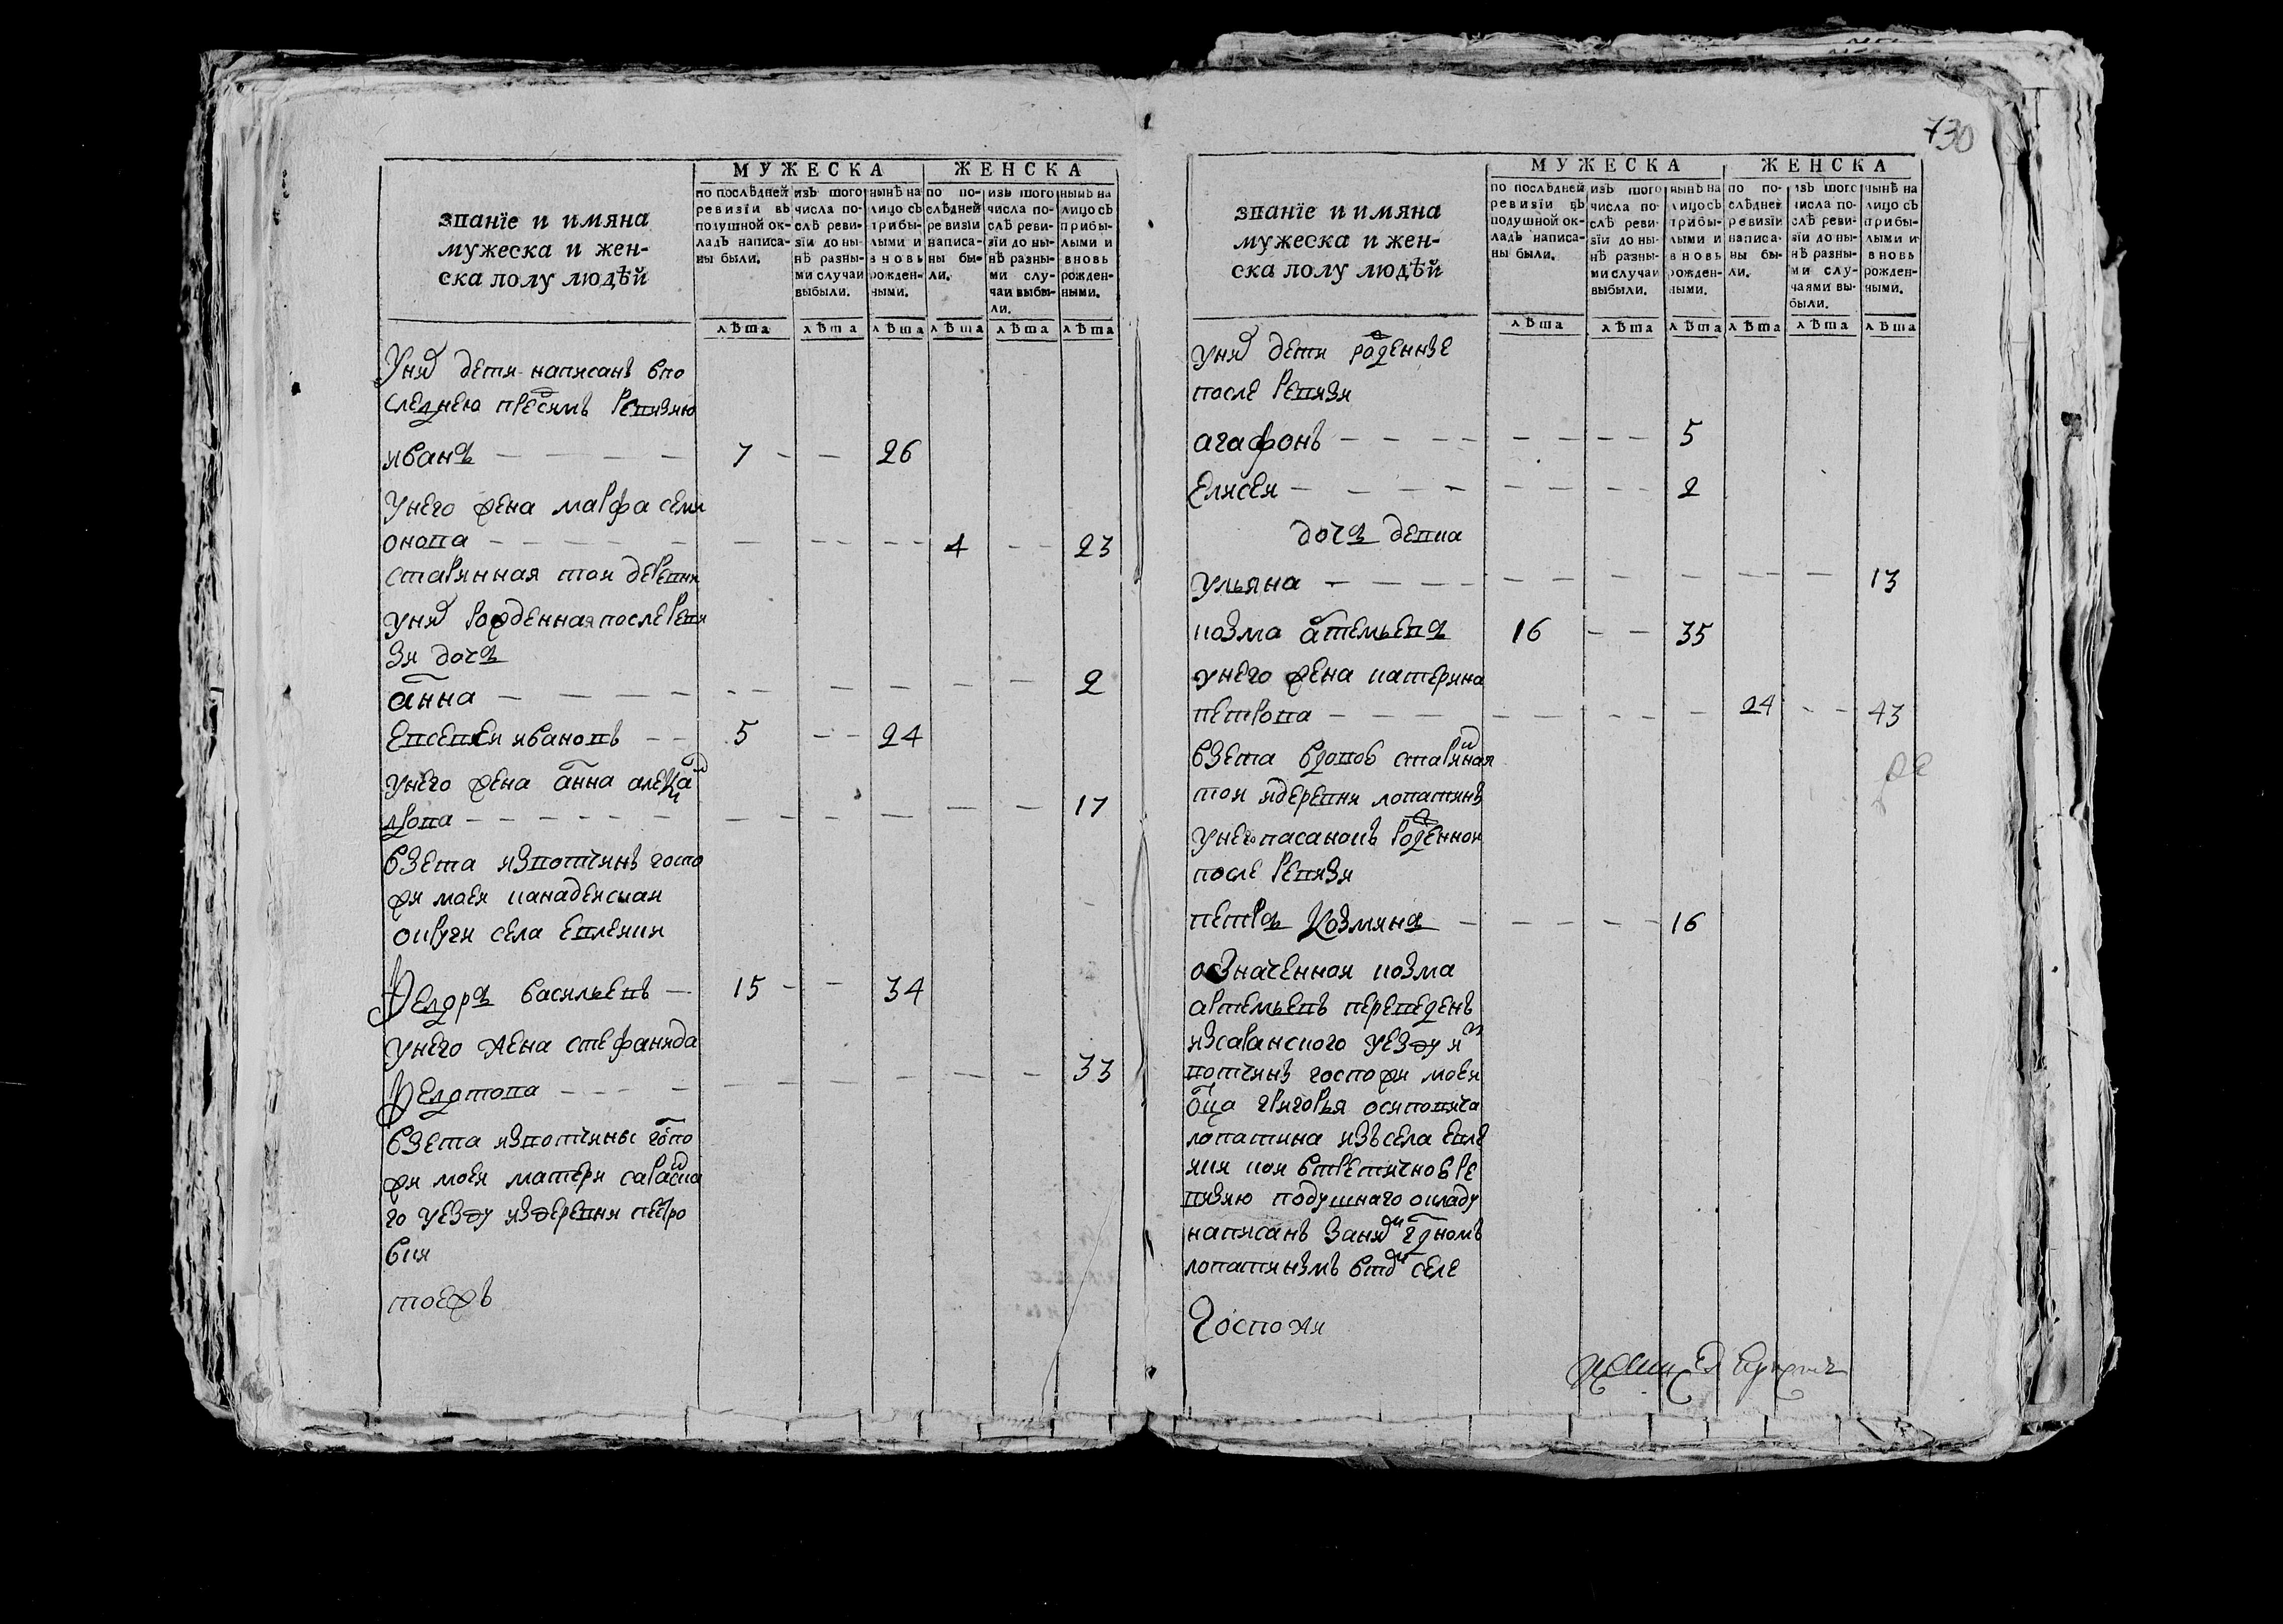 730
МУЖЕСКА ЖЕНСКА
званїе и имяна
мужеска и жен-
ска полу людѣй
по послѣдней ревизїи въ подушной ок-ладъ написа-ны были.
изъ того числа по-слѣ реви-зїи до ны-нѣ разны-ми случаи выбыли.
нынѣ на лицо съ прибы-лыми и вновь рожден-ными.
по по-слѣдней ревизїи написа-ны бы-ли.
изъ того числа по-слѣ реви-зїи до ны-нѣ разны-ми слу-чаи выбы-ли.
нынѣ на лицо съ прибы-лыми и вновь рожден-ными.
лѣта лѣта лѣта лѣта лѣта лѣта
Унихъ дети написанѣ впо
следнею предсимъ ревизию
иванъ 7 26
Унего жена марфа семи
онова 4 23
старинная тои деревни
униⷯ рожденная послереви
зи дочь
анна 2
Евсевеи ивановъ 5 24
унего жена анна алекса
дрова 17
взета извотчинѣ госпо
жи моеи канадеискаи
округи села евлеики
Федоръ васильевъ 15 34
унего жена стефанида
Федотова 33
взета извотчины госпо
жи моеи матери сараска
го уезду издеревни петро
вки
тоежъ
МУЖЕСКА ЖЕНСКА
званїе и имяна
мужеска и жен-
ска полу людѣй
по послѣдней ревизїи въ подушной ок-ладъ написа-ны были.
изъ того числа по-слѣ реви-зїи до ны-нѣ разны-ми случаи выбыли.
нынѣ на лицо съ прибы-лыми и вновь рожден-ными.
по по-слѣдней ревизїи написа-ны бы-ли.
изъ того числа по-слѣ реви-зїи до ны-нѣ разны-ми слу-чаями вы-были.
нынѣ на лицо съ прибы-лыми и вновь рожден-ными.
лѣта лѣта лѣта лѣта лѣта лѣта
униⷯ дети рожденнѣе
после ревизи
агафонъ 5
Елисеи 2
дочь девка
ульяна 13
козма артемьевъ 16 35
унего жена катерина
петрова 24 43
взета вдовов старинная
тои идеревни лопатинѣ
унего пасанокъ рожденнои
после ревизи
петръ Козминъ 16
означеннои козма
артемьевъ переведенъ
изсаранского уезду из
вотчинѣ госпожи моеи
отца григорья осиповича
лопатина изъсела евле
ики кои втретичнов ре
визию подушнаго окладу
написанъ заниⷨ
лопатинѣмъ втом селе
Госпожи